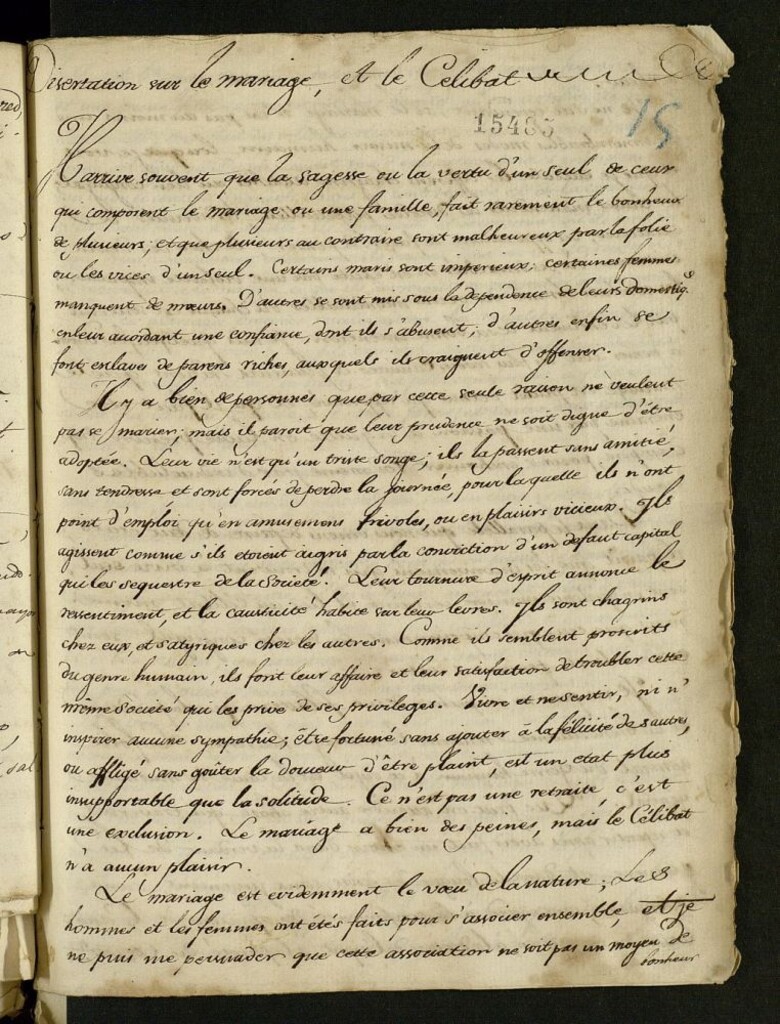 Disertation sur le mariage, et le Célibat
15485
15
Il arrive souvent que la sagesse ou la vertu d'un seul de ceux
qui composent le mariage ou une famille, fait rarement le bonheur
de plusieurs; et que plusieurs au contraire sont malheureux par la folie
ou les vices d'un seul. Certains maris sont imperieux; certaines femmes
manquent de mœurs. D'autres se sont mis sous la dependence de leurs domestiq.s
en leur acordant une confiance, dont ils s'abusent; d'autres enfin se
font esclaves de parens riches, auxquels ils craignent d'offenser.
Il y a bien de personnes que par cette seule raison ne veulent
pas se marier; mais il paroit que leur prudence ne soit digne d'être
adoptée. Leur vie n'est qu'un triste songe; ils la passent sans amitié,
sans tendresse et sont forcés de perdre la journée, pour la quelle ils n'ont
point d'emploi qu'en amusemens frivoles, ou en plaisirs vicieux. Ils
agissent comme s'ils etoient aigris par la conviction d'un defaut capital
qui les sequestre de la Societé. Leur tournure d'esprit annonce le
ressentiment, et la causticité habite sur leur levres. Ils sont chagrins
chez eux, et satyriques chez les autres. Comme ils semblent proscrits
du genre humain, ils font leur affaire et leur satisfaction de troubler cette
même societé qui les prive de ses privileges. Vivre et ne sentir, ni n'
inspirer aucune sympathie; être fortuné sans ajouter à la félicité des autres,
ou affligé sans goûter la douceur d'être plaint, est un etat plus
insupportable que la solitude. Ce n'est pas une retraite, c'est
une exclusion. Le mariage a bien des peines, mais le Célibat
n'a aucun plaisir.
Le mariage est evidemment le vœu de la nature; Les
hommes et les femmes ont étés faits pour s'associer ensemble, et je
ne puis me persuader que cette association ne soit pas un moyen de
bonheur